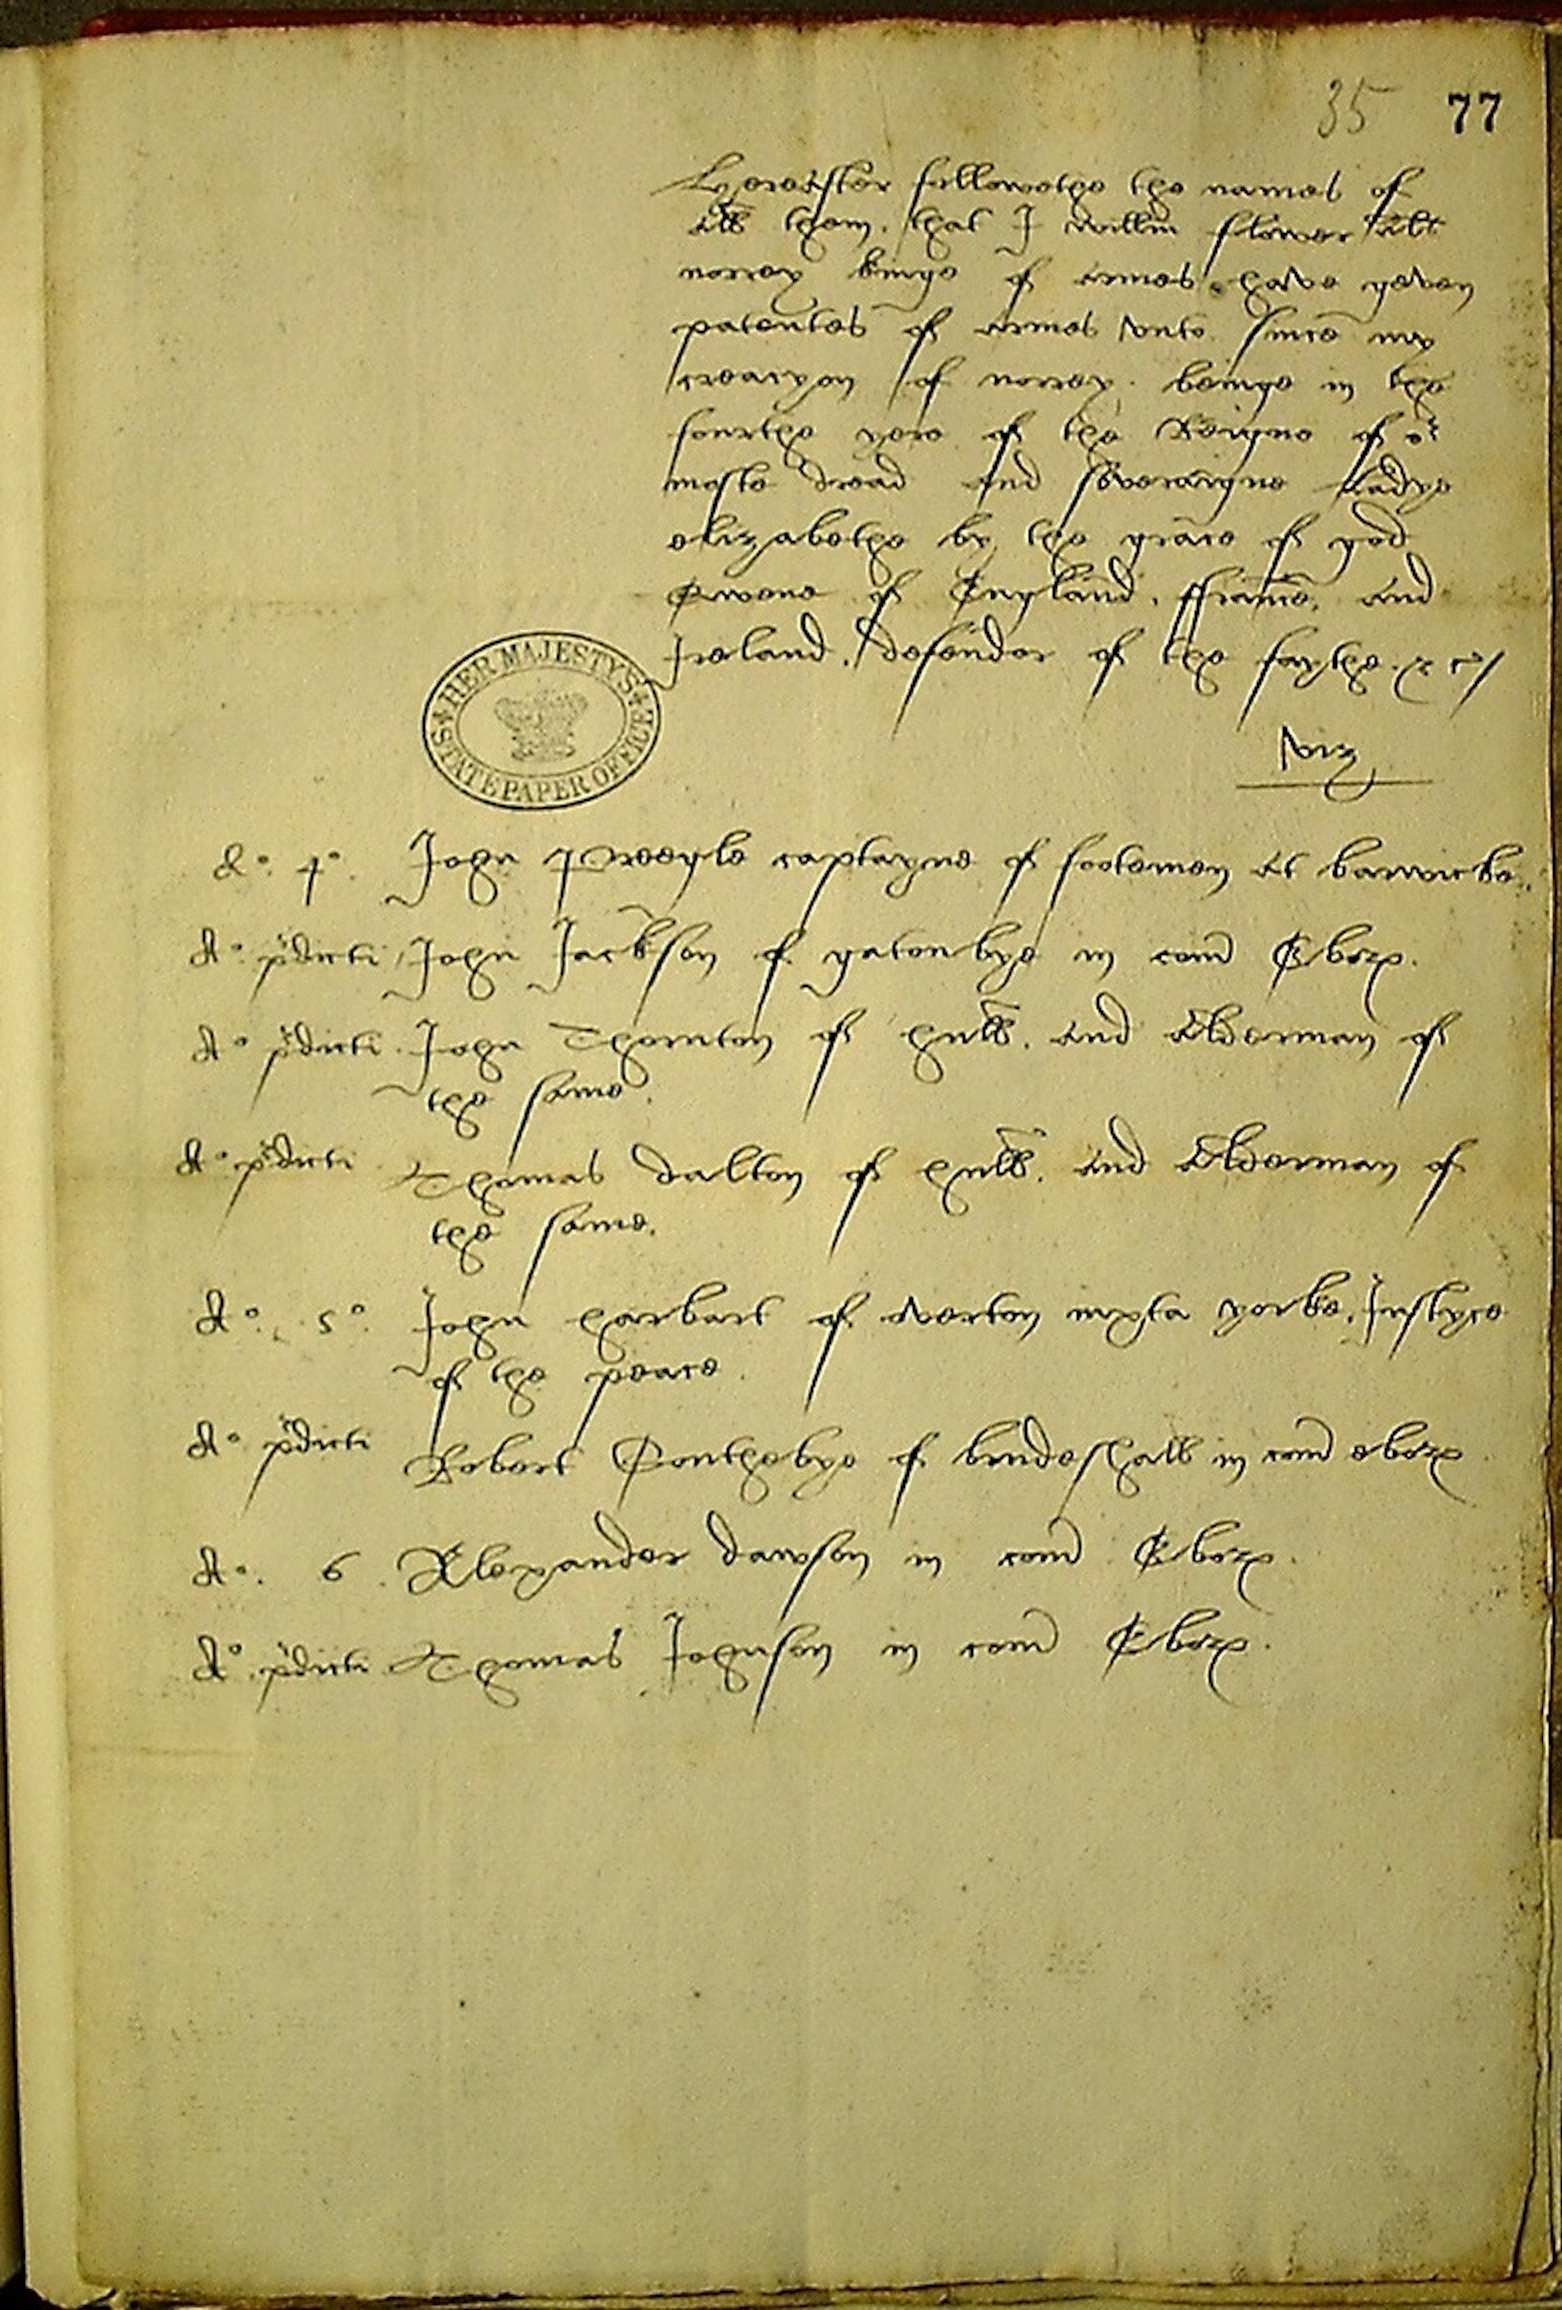 35 77
Hereafter followethe the names of
all them. that I willm flower als
norrey kinge of armes have geven
patentes of armes vnto. since my
creacyon of norrey. beinge in the
fourthe yere of the Reigne of or
moste dread and soveraigne Ladye
elizabethe by the grace of god
Qwene of England. ffrance, and
Ireland. defendor of the faythe. &c/
viz
HER MAJESTY'S
STATE PAPER OFFICE
Ao. 4o. John captayne of footemen at barwicke.
Ao. pdicti John Jackson of gatonbye in com Eborz.
Ao pdicti. John Thornton of hull. and Alderman of
the same.
Ao pdicti Thomas dalton of hull. and Alderman of
the same.
Ao. 5o. John harbart of merton iuxta yorke. Justyce
of the peace.
Ao pdicti Robert Conthebye of birdeshall in com eborz.
Ao. 6. Alexander dawson in com Eborz.
Ao. pdicti Thomas Johnson in com Eborz.